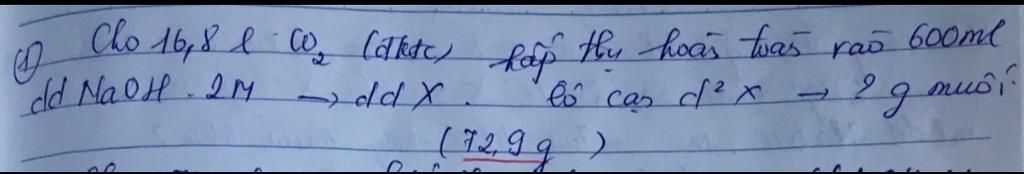 ① Cho 16,8 l CO₂ (đktc) hấp thụ hoàn toàn vào 600ml
dd NaOH 2M → dd X. Cô cạn d² X → ? g muối
(72,9 g)